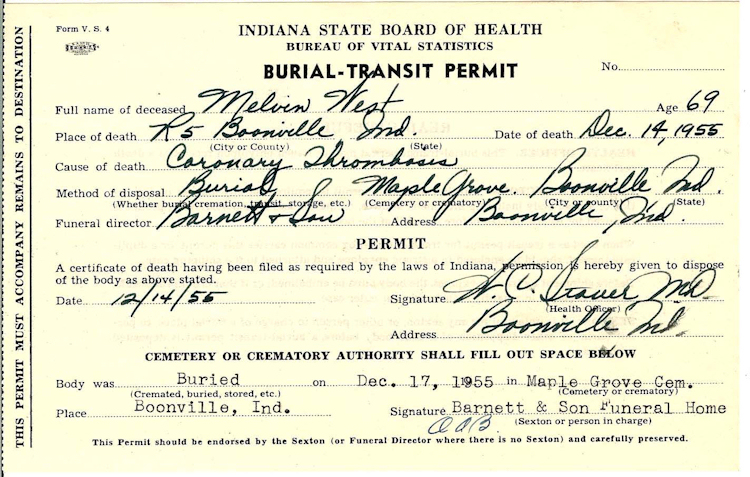 Form V. S. 4
INDIANA STATE BOARD OF HEALTH
BUREAU OF VITAL STATISTICS
BURIAL-TRANSIT PERMIT
No.
Full name of deceased Melvin West Age 69
Place of death R5 Boonville Ind. Date of death Dec. 14, 1955
(City or County) (State)
Cause of death Coronary Thrombosis
Method of disposal Burial Maple Grove. Boonville Ind.
(Whether burial, cremation, transit, storage, etc.) (Cemetery or crematory) (City or county) (State)
Funeral director Barnett & Son Address Boonville, Ind.
PERMIT
A certificate of death having been filed as required by the laws of Indiana, permission is hereby given to dispose
of the body as above stated.
Date 12/14/55 Signature W. C. Md.
(Health Officer)
Address Boonville Ind.
CEMETERY OR CREMATORY AUTHORITY SHALL FILL OUT SPACE BELOW
Body was Buried on Dec. 17, 1955 in Maple Grove Cem.
(Cremated, buried, stored, etc.) (Cemetery or crematory)
Place Boonville, Ind. Signature Barnett & Son Funeral Home
(Sexton or person in charge)
This Permit should be endorsed by the Sexton (or Funeral Director where there is no Sexton) and carefully preserved.
THIS PERMIT MUST ACCOMPANY REMAINS TO DESTINATION